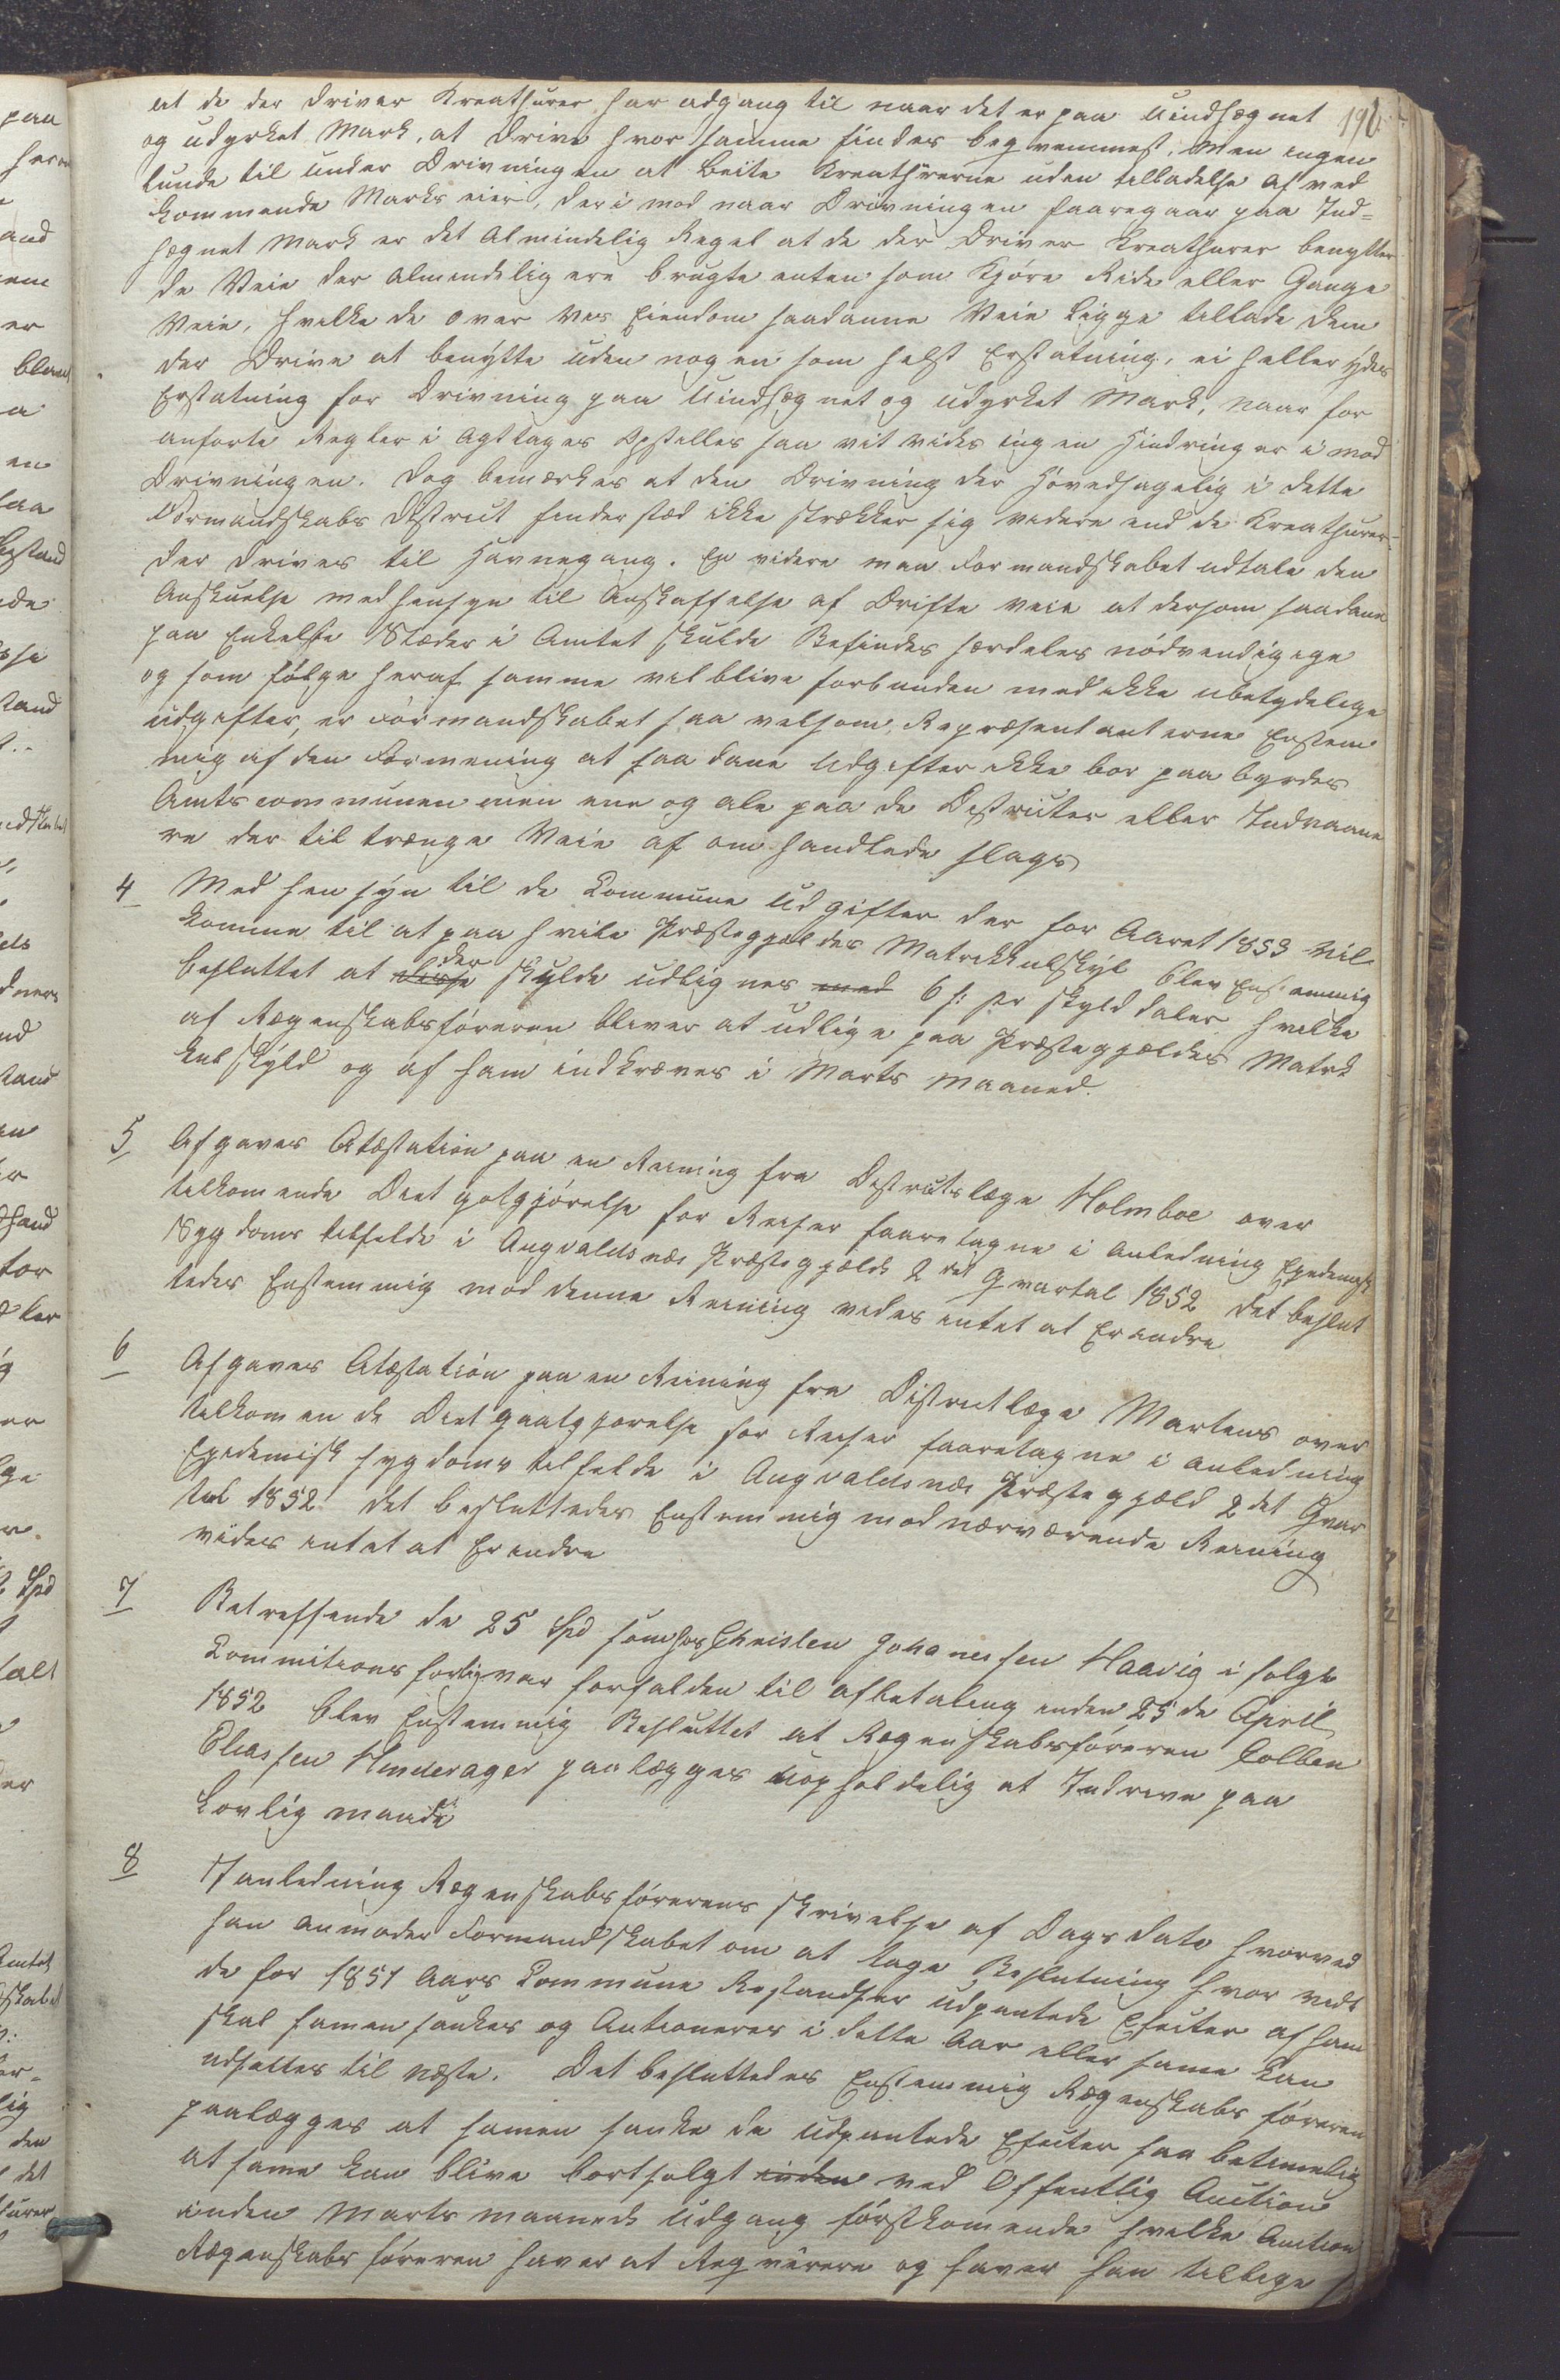 196
at de der driver Kreathurer har adgang til naar det er paa Uindhægnet
og udyrket Mark, at drive hvor samme findes beqvemmest, Men ingen
lunde til under Drivningen at beite Kreathurerne uden tilladelse af ved
kommende Marks eier, der i mod naar Drivningen foaregaar paa Ind-
hægnet Mark er det Almindelig Regel at de der Driver Kreathurer benytter
de Veie der Almindeligere brugte enten som Kjøre Ride eller Gange
Veie, hvilke de over ves Eiendom saadanne Veie ligge tillade dem
der Drive at benytte uden nogen som helst Erstatning, ei heller ydes
Erstatning for Drivning paa Uindhægnet og udyrket Mark, naar for
anforte Regler i Agttages Opstilles saa vit vides ingen Hindringer i mod
Drivningen. Dog bemærkes at den Drivning der Hovedsagelig i dette
Formandskabs District finder stæd ikke strækker sig videre end de Kreathurer
der drives til Havnegang. En videre maa Formandskabet udtale den
Anskuelse med hensyn til Anskaffelse af Drifte veie at dersom saadane
paa Enkelte Stæder i Amtet skulde Befindes særdeles nödvendigige
og som fölge heraf samme vil blive forbunden med ikke ubetydelige
udgifter, er Formandskabet saa velsom Repræsentanterne Enstem
mig af den Formening at saa dane Udgifter ikke bor paa byrdes
Amtscommunen men ene og ale paa de Districter eller Indvaane
re der til trænge Veie af om handlede slags
4 Med hensyn til de Commune Udgifter der for Aaret 1853 vil
komme til at paa hvile Præstegjældes Matrikkulskyl blev Enstemmig
besluttet at disse der skylde udlignes med 6 s: pr skylddaler hvilke
af Regenskabsföreren bliver at udlige paa Præstegjældes Matrk
kulskyld og af ham indkræves i Marts Maaned.
5 Afgaves Atæstation paa en Reining fra Districtslæge Holmboe over
tilkomende Diet gotgjörelse for Reiser faaretagne i Anledning Epedemisk
Sygdoms tilfelde i Augvaldsnæs Præstegjælds 2det Qvartal 1852 det beslut
tedes Enstemmig mod denne Reining vides intet at Erindre
6 Afgaves Atæstation paa en Reining fra Districtlæge Martens over
tilkomende Diet gaatgjorelse for Reiser faaretagne i anledning
Epedemisk sygdoms tilfelde i Augvaldsnæs Præstegjæld 2det Qvar
tal 1852. det besluttedes Enstemmig mod nærværende Reining
vides intet at Erindre
7 Betreffende de 25 Spd som hos Christen Johanessen Haavig i folge
Commitionsforlig var forfalden til afbetaling inden 25de April
1852 blev Enstemmig Besluttet at Regenskabsföreren Colben
Eliassen Hinderager paalægges uopholdelig at Indrive paa
Lovlig maade
8 I anledning Regenskabsförerens skrivelse af Dags Dato hvorved
han anmoder Formandskabet om at tage Beslutning hvor vidt
de for 1851 Aars Commune Restandser udpantede Efecter af ham
skal samen sankes og Autioneres i dette Aar eller same kan
udsettes til næste. Det besluttedes Enstemmig Regenskabs föreren
paalægges at samen sanke de Udpantede Efecter saa betimelig
at same kan blive bortsolgt inden ved Offentlig Auction
inden Marts maaneds Udgang förstkomende hvilke Auction
Regenskabs föreren haver at Reqvirere og haver han tillige